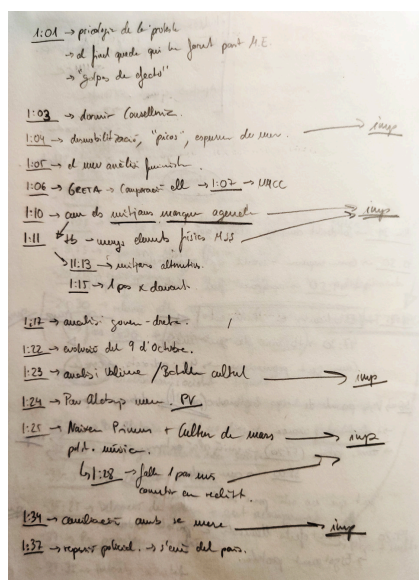 1:01 → psicologia de la protesta
→ al final queda qui ha format part M.E.
→ "golpes de efecto"
1:03 → dormir Conselleria.
1:04 → desmobilització, "picos", → imp
1:05 → el meu anàlisi feminista
1:06 → GRETA → Comparació ell → 1:07 → UACC
1:10 → com els mitjans marquen agenda → imp
1:11 tb → menys físics MSS
→ 11:13 → mitjans alternatius.
1:15 → 1 pas x davant.
1:17 → analisi govern - dreta.
1:22 → evolució del 9 d'Octubre.
1:23 → analisi /Batalla cultural → imp
1:24 → Pau Alabajos PV
1:25 → Naixen Primers + Cultura de mass → imp
polit. música.
↳ 1:28 → falta 1 pas mes
convertir en realitat.
1:34 → amb sa mare → imp
1:37 → policial. → del país.